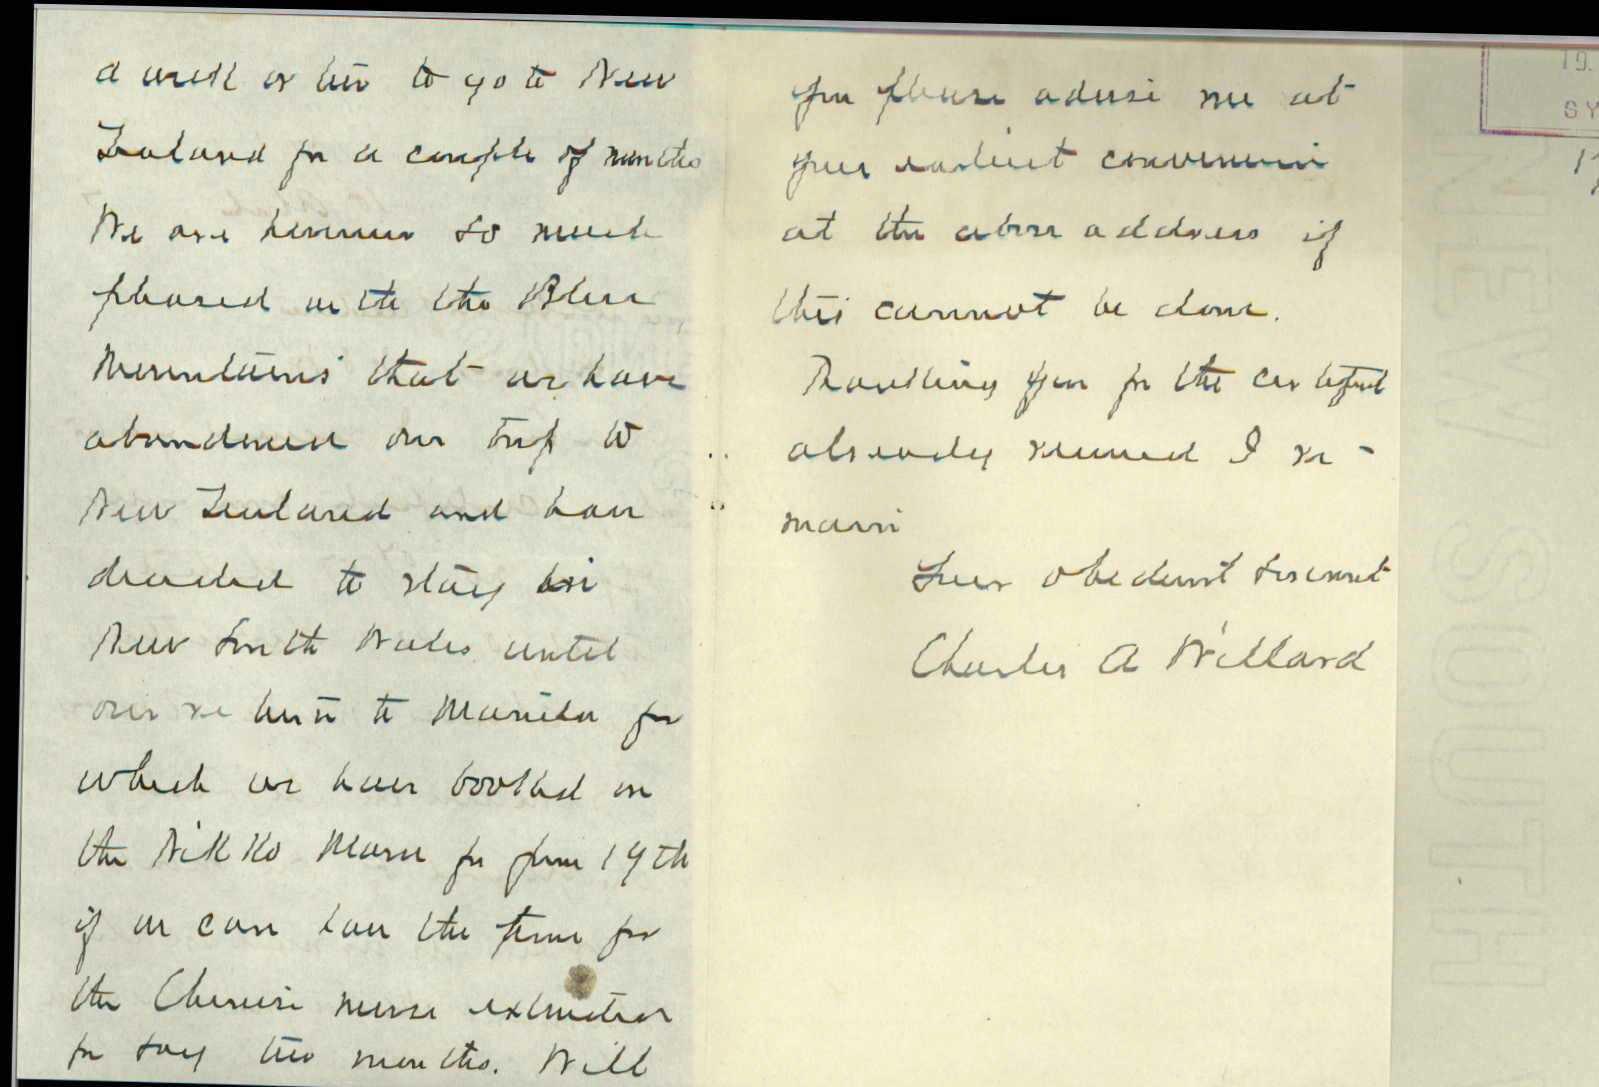 a week or two to go to New
Zealand for a couple of months
We are however so much
pleased with the Blue
Mountains that we have
abandoned our trip to
New Zealand and have
decided to stay in
New South Wales until
our return to Manila for
which we have booked on
the Nikko Maru for June 19th
if we can have the time for
the Chinese nurse extended
for say two months. Will
you please advise me at
your earliest convenience
at the above address if
this cannot be done.
Thanking you for the certificate
already received I re-
main
Your obedient servant
Charles A Willard
19.
SY
NEW SOUTH